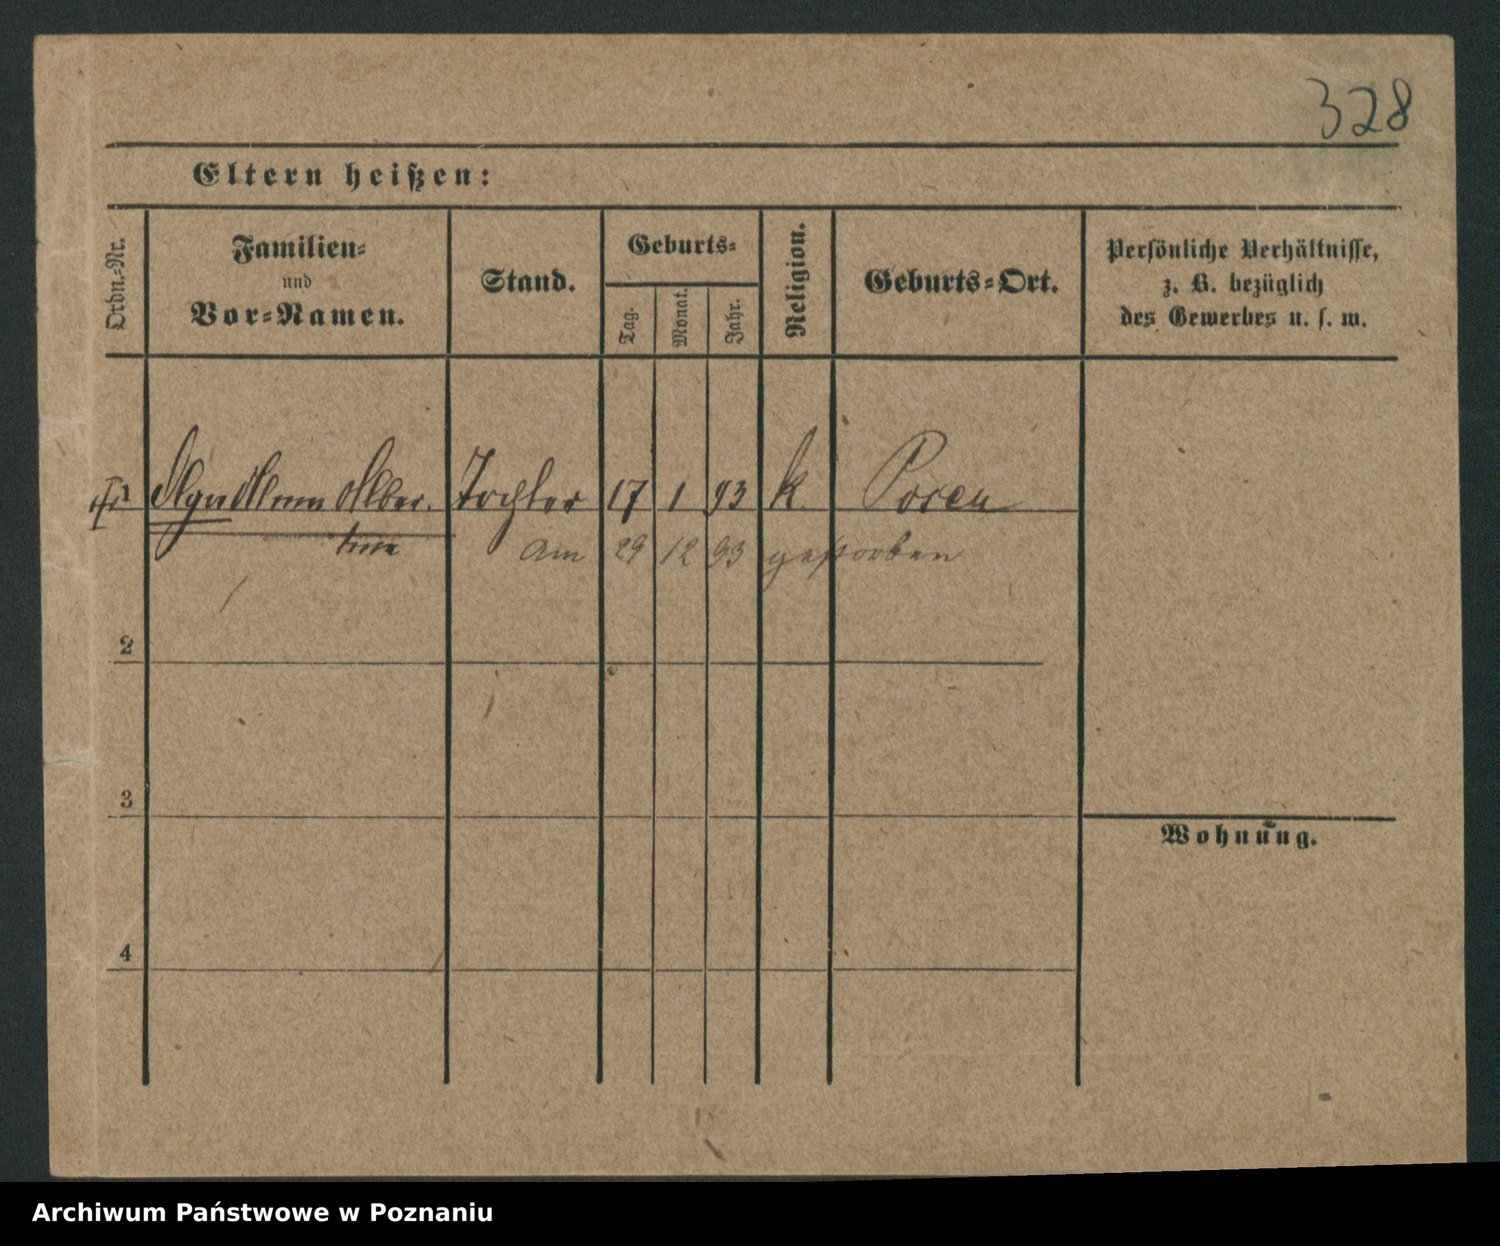 328
Eltern heißen:
Ordn.-Nr.
Familien-
und
Vor-Namen.
Stand.
Geburts-
Tag.
Monat.
Jahr.
Religion.
Geburts-Ort.
Persönliche Verhältnisse,
z. B. bezüglich
des Gewerbes u. s. w.
1 Anna Alber. Tochter 17 1 93 k. Posen
tine am 29 12 93 gestorben
2
3
Wohnung.
4
Archiwum Państwowe w Poznaniu